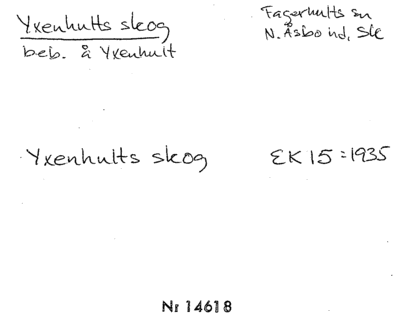 Yxenhults skog
Fagerhults sn
beb. å Yxenhult
N. Åsbo hd, Sk
Yxenhults skog
EK 15 : 1935
Nr 14618